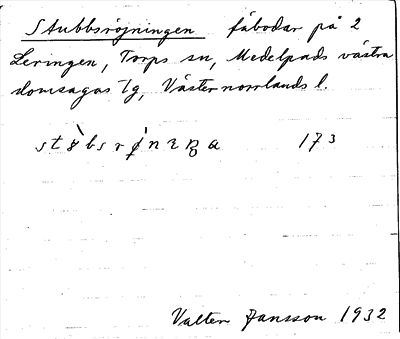 Stubbsröjningen fäbodar på 2
Leringen, Torps sn, Medelpads västra
domsagas tg, Västernorrlands l.
173
Valter Jansson 1932